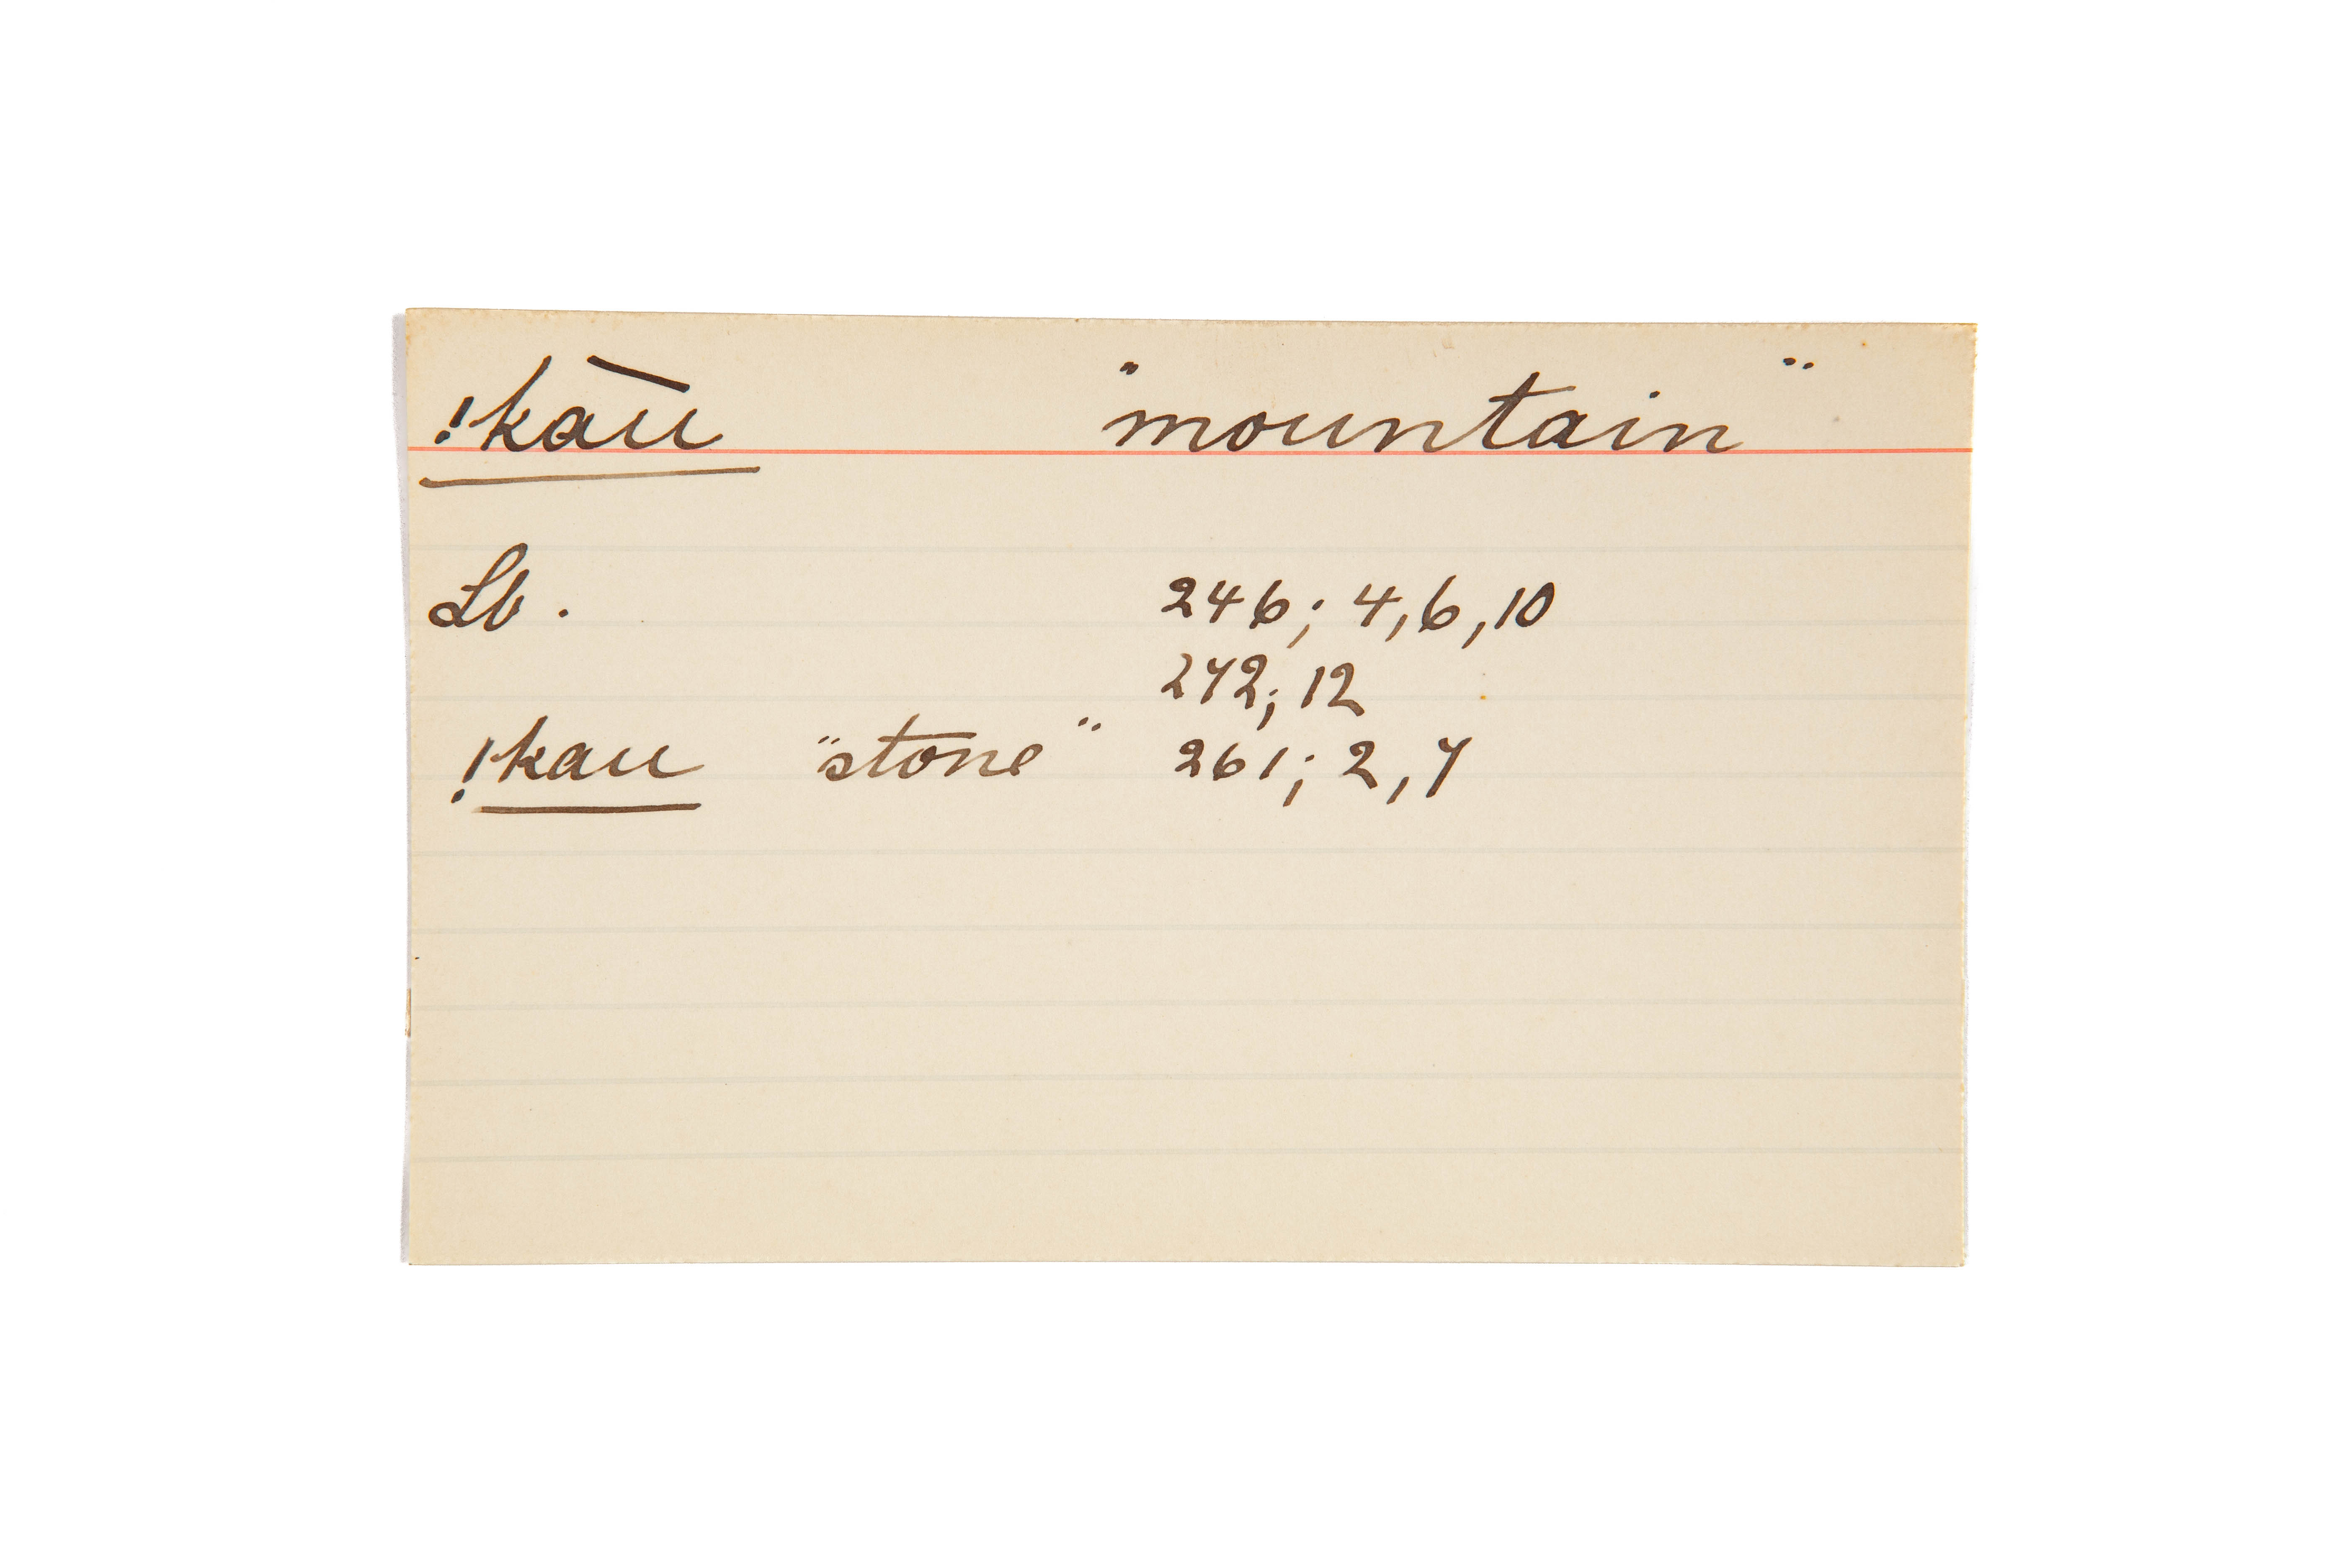 !ka͞u "mountain"
Lb. 246; 4, 6, 10
272; 12
!kau "stone" 261; 2, 7